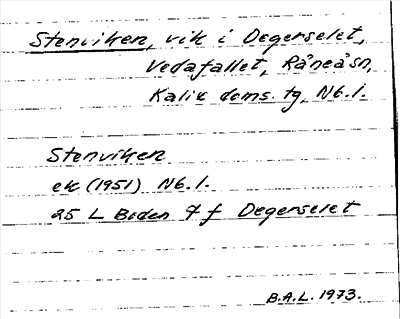 Stenviken, vik i Degerselet,
Vedafallet, Råneå sn,
Kalix doms. tg, Nb. l.
Stenviken
ek (1951) Nb. l.
25 L Boden 7 f Degerselet
B.A.L. 1973.